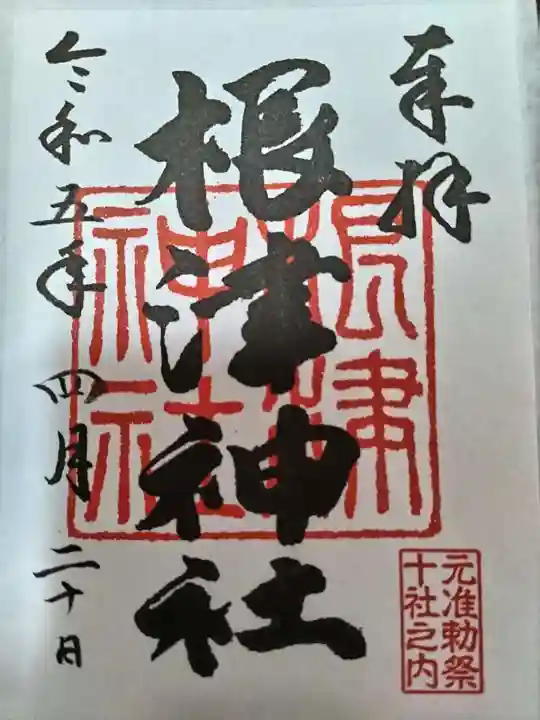 奉拝
根津神社
根津神社
元准勅祭
十社之内
令和五年 四月 二十日